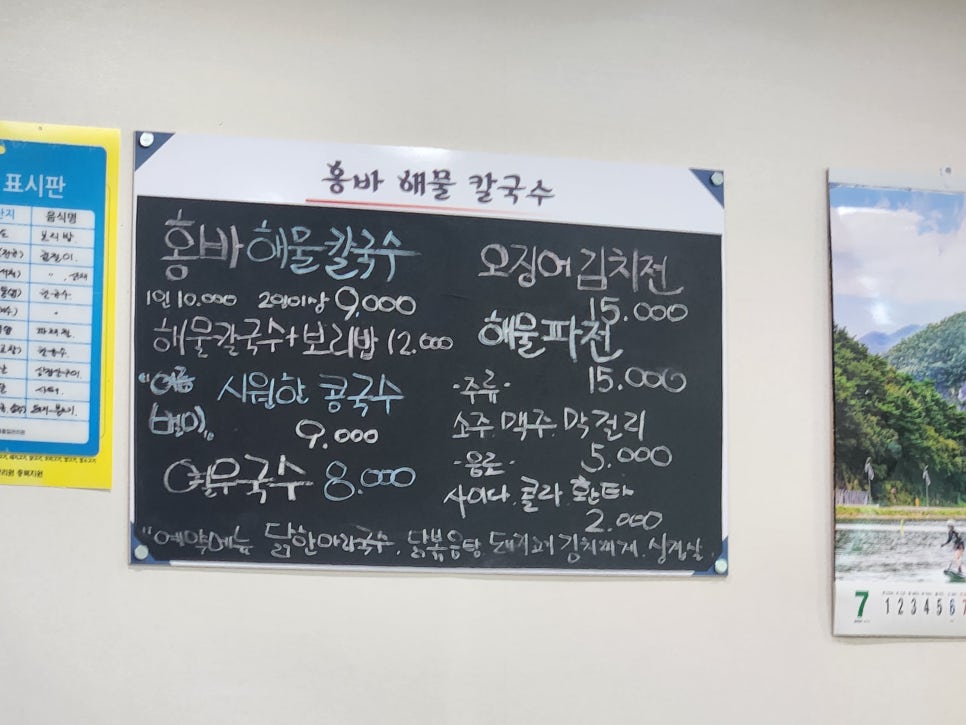 홍바 해물 칼국수
홍바 해물칼국수
1인 10.000 2인이상 9.000
해물칼국수+보리밥 12.000
"여름 시원한 콩국수
별미"
9.000
열무국수 8.000
오징어김치전
15.000
해물파전
15.000
-주류-
소주.맥주.막걸리
5.000
-음료-
사이다.콜라.환타
2.000
"예약메뉴 닭한마리국수. 닭볶음탕 돼지고기김치찌개.삼겹살
표시판
음식명
보리밥
겉절이
콩국수
파전
7
1 2 3 4 5 6 7